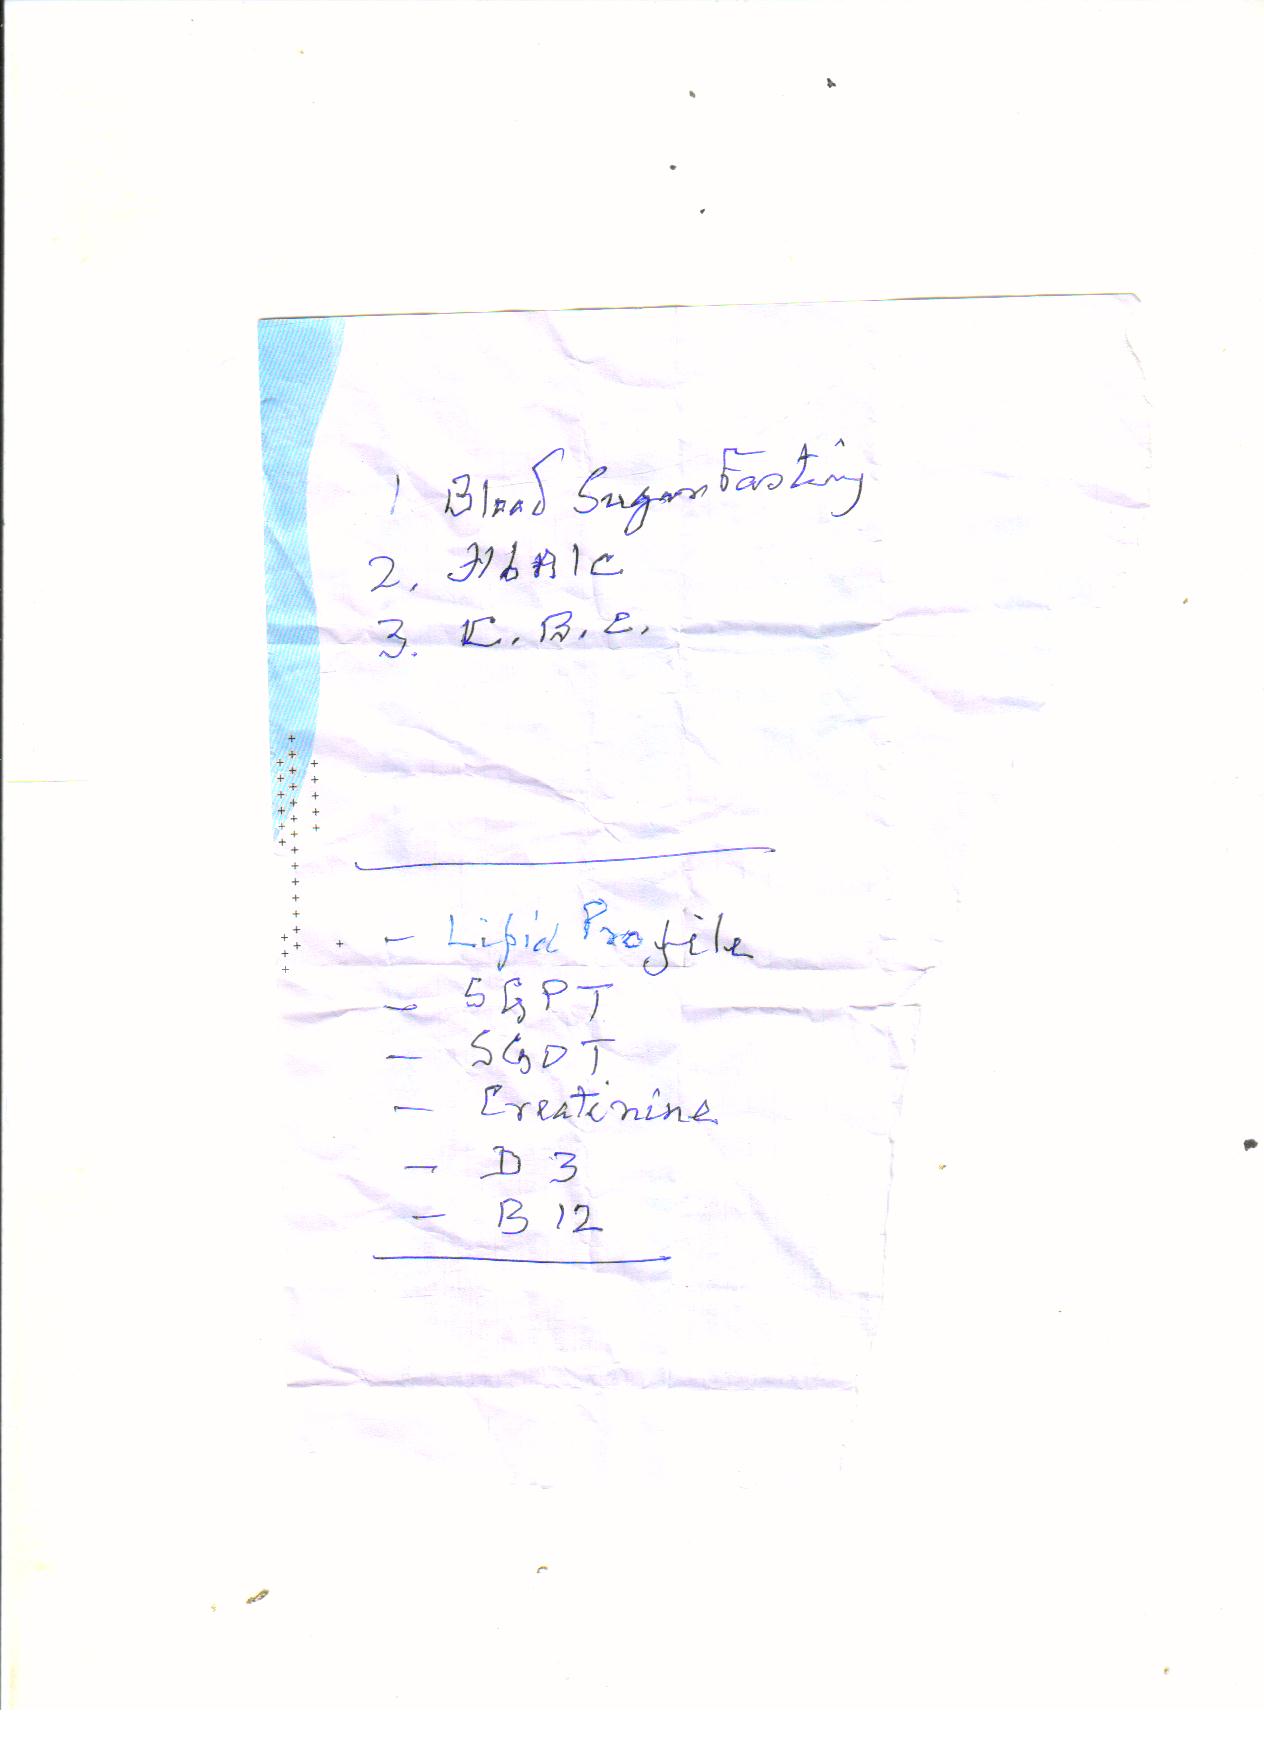 1 Blood Sugar Fasting
2. HbA1C
3. C.B.C.
- Lipid Profile
- SGPT
- SGOT
- Creatinine
- D3
- B12